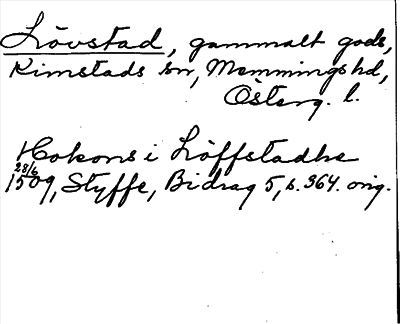 Lövstad, gammalt gods,
Kimstads sn, Memmings hd,
Österg. l.
Hokons i Löffstadhe
28/6
1509, Styffe, Bidrag 5, s. 364. orig.